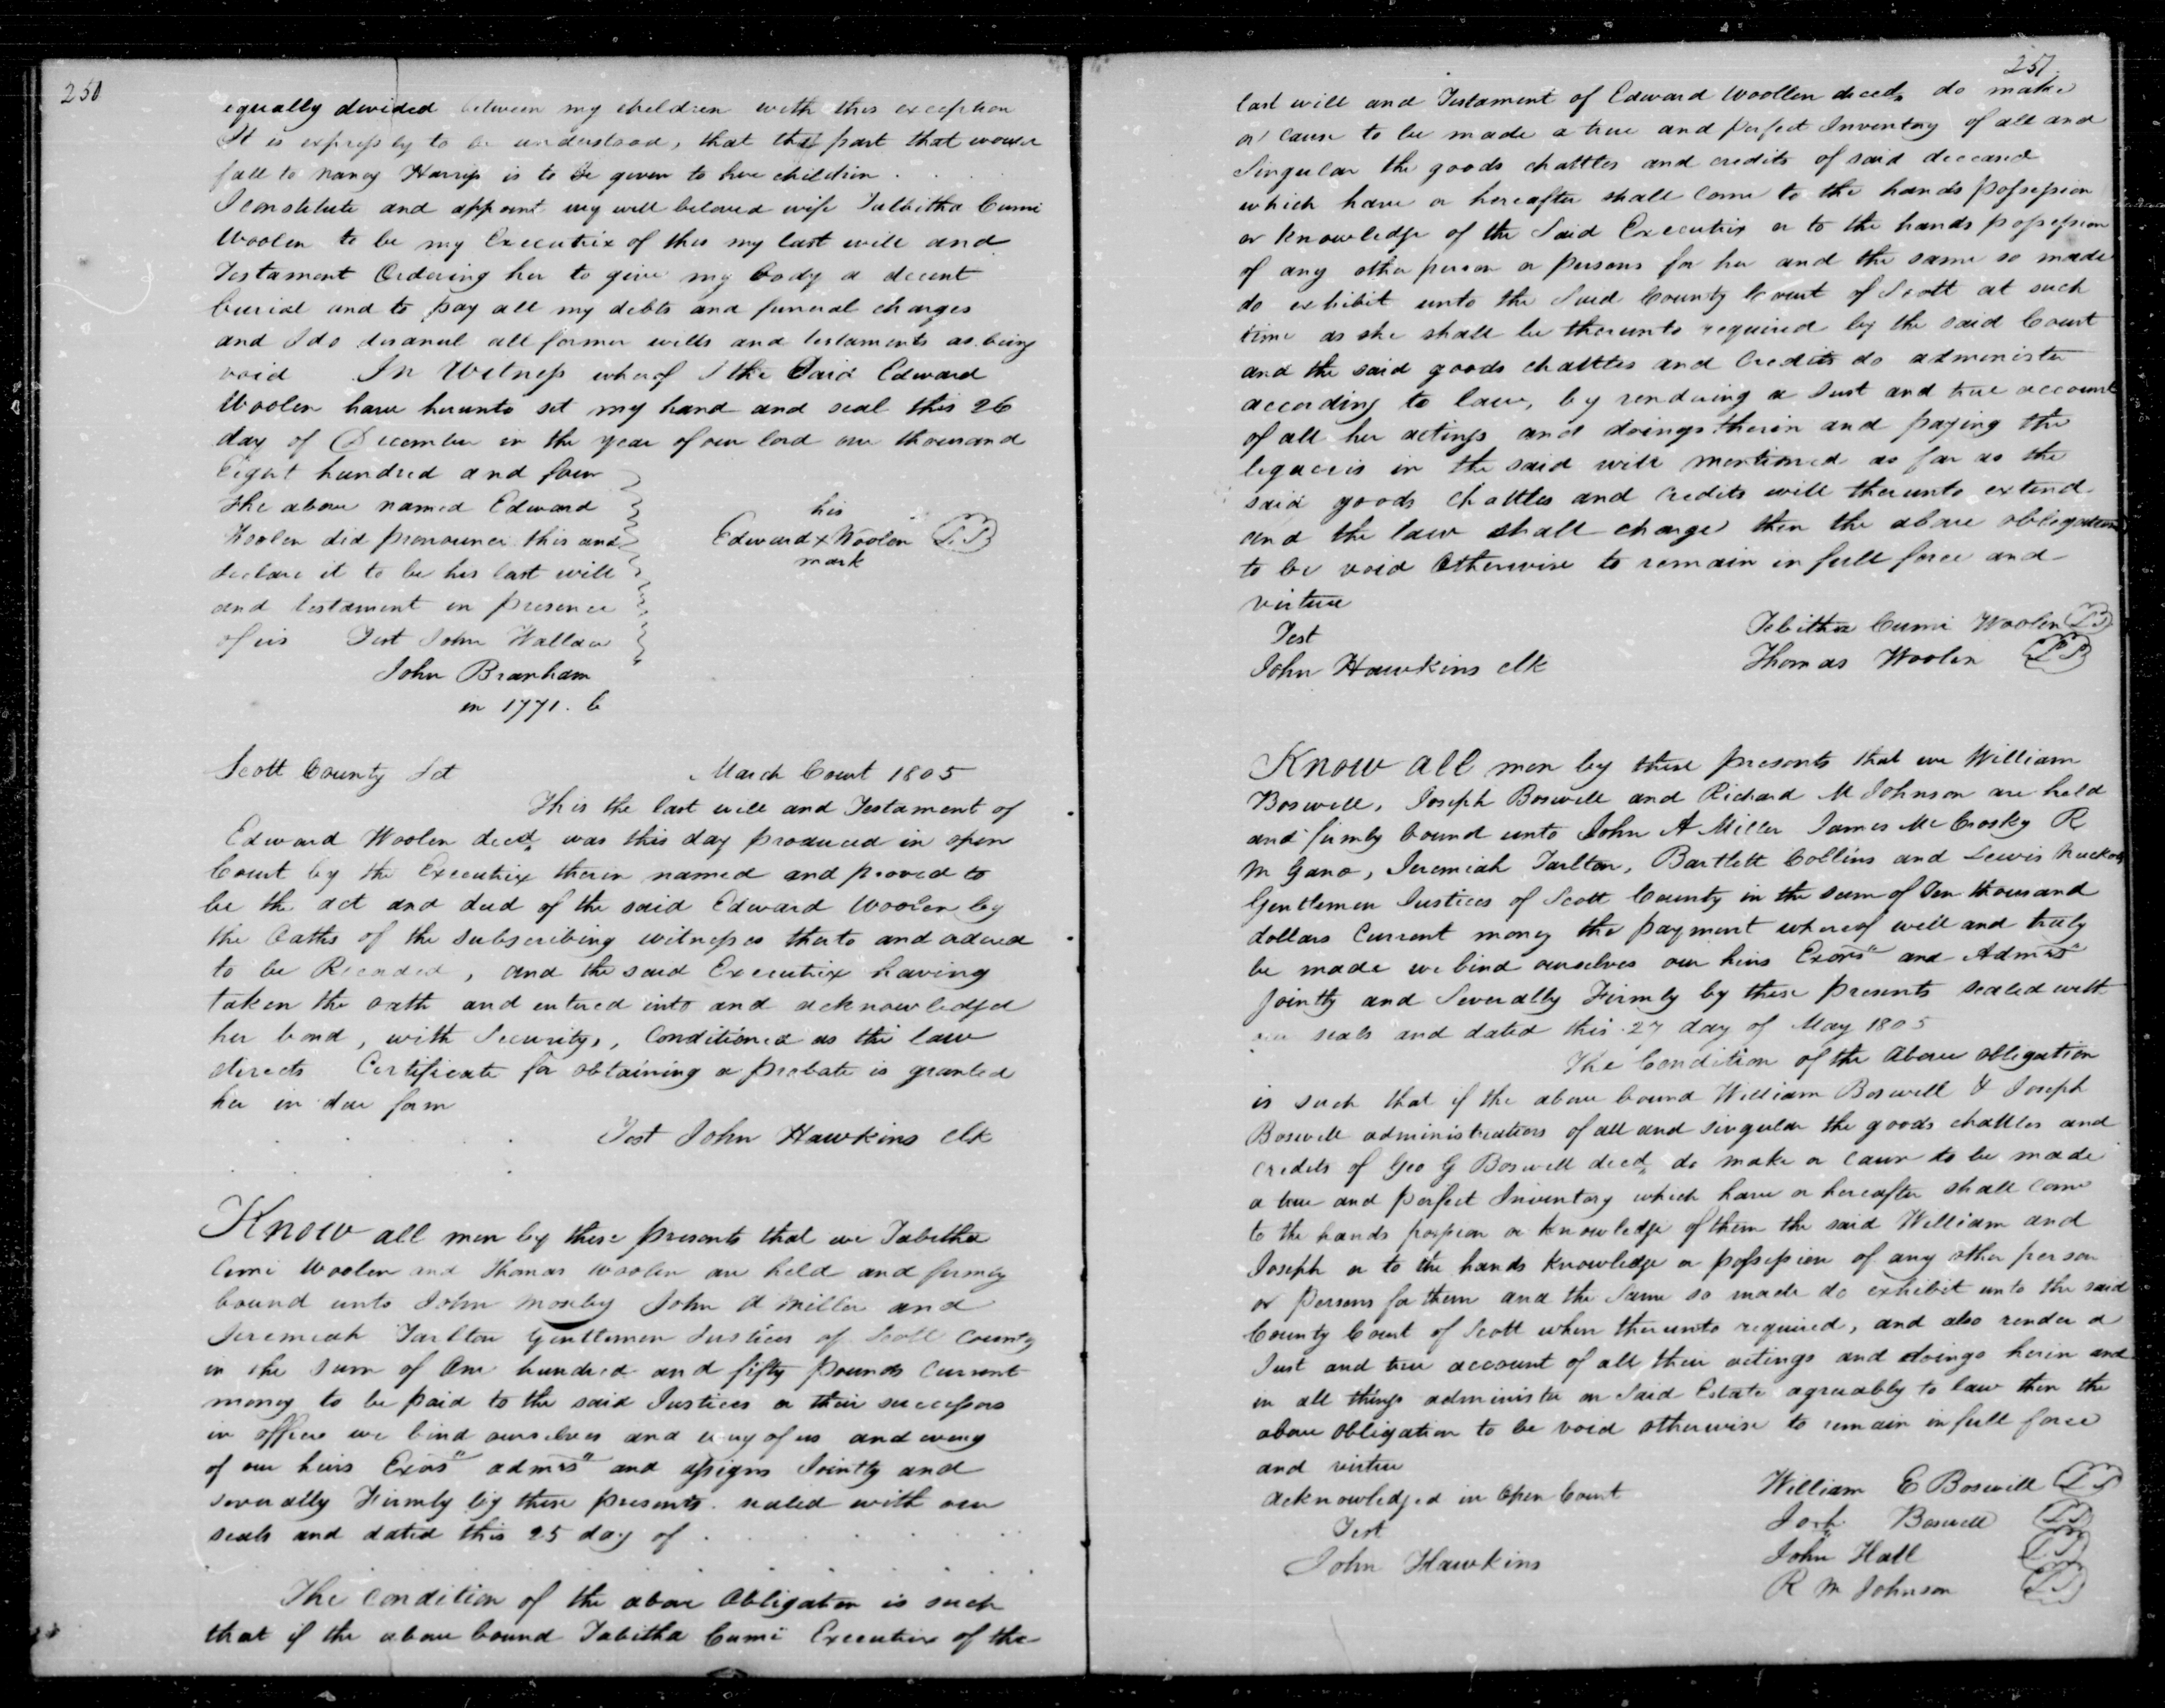 250
equally devided between my children with this exception
It is expressly to be understood, that that part that would
fall to Nancy Harris is to be given to her children
I constitute and appoint my well beloved wife Talbitha Cumi
Woolen to be my Executrix of this my last will and
Testament Ordering her to give my body a decent
burial and to pay all my debts and funeral charges
and I do disanul all former wills and testaments as being
void In Witness whereof I the Said Edward
Woolen have hereunto set my hand and seal this 26
day of December in the year of our lord one thousand
Eight hundred and four
The above named Edward
Woolen did pronounce this and
declare it to be his last will
and testament in presence
of us Test John Wallace
John Branham
in 1771. C
his
Edward X Woolen LS
mark
Scott County Sct March Court 1805
This the last will and Testament of
Edward Woolen decd was this day produced in open
Court by the Executrix therein named and proved to
be the act and deed of the said Edward Woolen by
the Oaths of the subscribing witnesses thereto and ordered
to be Recorded, and the said Executrix having
taken the oath and entered into and acknowledged
her bond, with Security, Conditioned as the law
directs Certificate for obtaining a probate is granted
her in due form
Test John Hawkins clk
Know all men by these presents that we Tabitha
Cumi Woolen and Thomas Woolen are held and firmly
bound unto John Mosby John A Miller and
Jeremiah Tarlton Gentlemen Justices of Scott County
in the Sum of One hundred and fifty pounds Current
money to be paid to the said Justices or their successors
in office we bind ourselves and every of us and every
of our heirs Exors admrs and assigns Jointly and
severally Firmly by these presents. sealed with our
seals and dated this 25 day of
The condition of the above Obligation is such
that if the above bound Tabitha Cumi Executrix of the
251
last will and Testament of Edward Woollen decd do make
or cause to be made a true and perfect Inventory of all and
Singular the goods chattles and credits of said deceased
which have or hereafter shall come to the hands possession
or knowledge of the Said Executrix or to the hands possession
of any other person or persons for her and the same so made
do exhibit unto the Said County Court of Scott at such
time as she shall be thereunto required by the said Court
and the said goods chattles and Credits do administer
according to law, by rendering a Just and true account
of all her actings and doings therein and paying the
legacies in the said will mentioned as far as the
said goods Chattles and credits will thereunto extend
and the law shall charge then the above obligation
to be void Otherwise to remain in full force and
virtue
Test
John Hawkins clk
Tebitha Cumi Woolen LS
Thomas Woolen LS
Know all men by these presents that we William
Boswell, Joseph Boswell and Richard M Johnson are held
and firmly bound unto John A Miller James McCrosky R
M Gano, Jeremiah Tarlton, Bartlett Collins and Lewis Nuckols
Gentlemen Justices of Scott County in the sum of Ten thousand
dollars Current money the payment whereof well and truly
be made we bind ourselves our heirs Exors and Admrs
jointly and Severally Firmly by these presents sealed with
our seals and dated this 27 day of May 1805
The Condition of the Above obligation
is such that if the above bound William Boswell & Joseph
Boswell administrators of all and singular the goods chattles and
credits of Geo G Boswell decd do make or cause to be made
a true and perfect Inventory which have or hereafter shall come
to the hands possession or knowledge of them the said William and
Joseph or to the hands knowledge or possession of any other person
or persons for them and the same so made do exhibit unto the said
County Court of Scott when thereunto required, and also render a
Just and true account of all their actings and doings herein and
in all things administer on Said Estate agreeably to law then the
above obligation to be void otherwise to remain in full force
and virtue
acknowledged in Open Court
Test
John Hawkins
William E Boswell LS
Josh Boswell LS
John Hall LS
R M Johnson LS